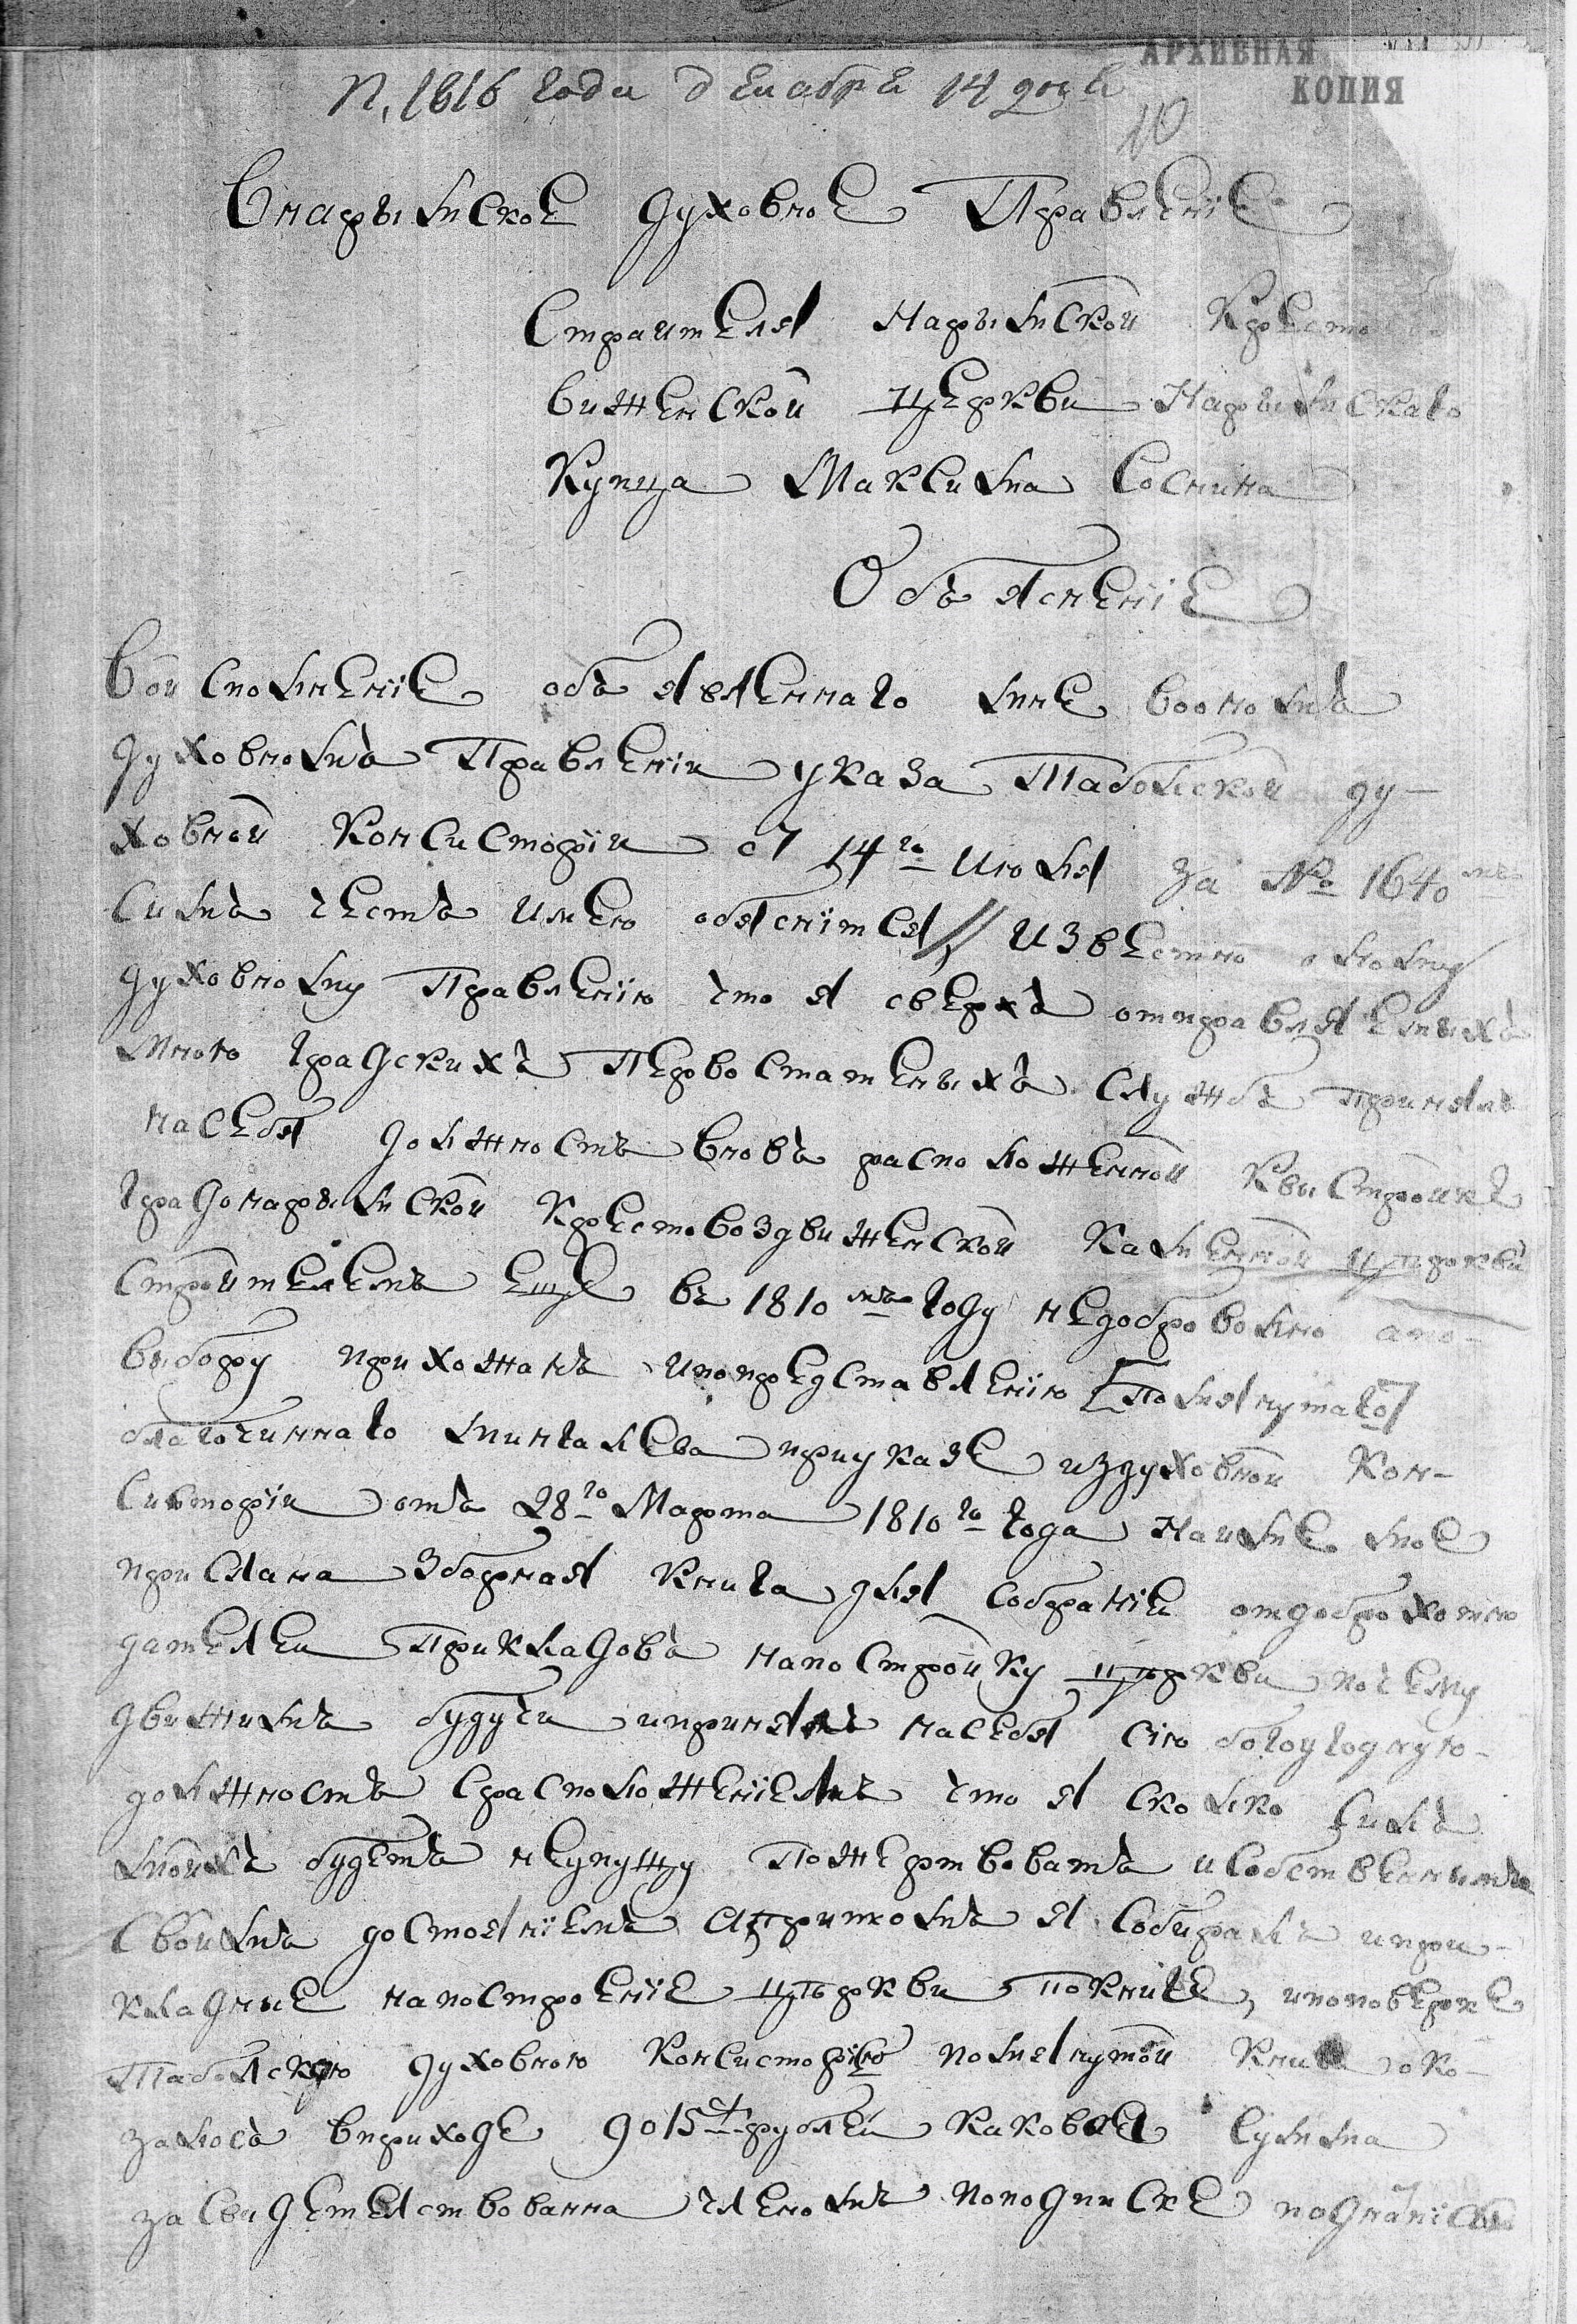 АРХИВНАЯ
КОПИЯ
П. 1816 года декабря 14 дня
10
Внарымское духовное Правленіе
Страителя Нарымской Кресто
вижемской церкви Нарымскаго
Купца Максима Соснина
Объясненіе
Воисполненіе объявленнаго мне воономъ
духовномъ Правленіи указа Таболской ду-
ховной Консисторіи от 14го Июля за № 1640мъ
симъ честь имею обяснітся // Известно оному
духовному Правленію что я сверхъ отправляемыхъ
мною градскихъ Первостатеныхъ службъ принялъ
насебя должность вновь расположенной Квыстройке
градонарымской Крестовоздвиженской Каменной церкви
строителемъ еще въ 1810мъ году недобровольно апо-
выбору прихожанъ ипопредставленію [помянутаго]
благочиннаго мингалева приуказе издуховной Кон-
систоріи отъ 28го Марта 1810го года Наимѣ мое
прислана Зборная Книга для собраніи отдоброхотно
дателеи Прикладовъ напостройку церкви почему
движимъ будучи ипринялъ насебя сію богоугодную-
должность срасположеніемъ что я сколко силъ
моихъ будетъ неупущу Пожертвовать исобственнымъ
своимъ достояніемъ апритомъ я собиралъ ипри-
кладные напостроеніе церкви покниге, ипоповерке
Таболскою духовною консисторіею помянутой Книге око-
залось вприходе до15т рублей каковая сумма
засвидетелствованна членомъ поподписке